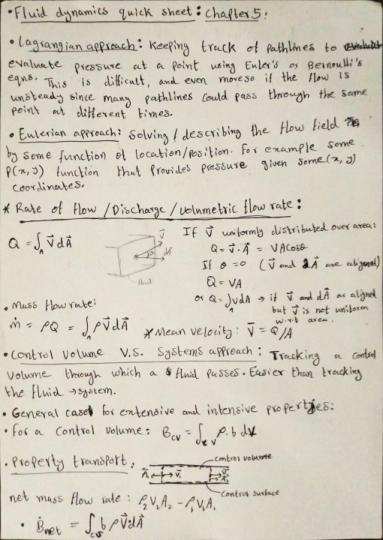 • Fluid dynamics quick sheet: Chapter 5.
• Lagrangian approach: Keeping track of pathlines to
evaluate pressure at a point using Euler's or Bernoulli's
eqns. This is difficult, and even moreso if the flow is
unsteady since many pathlines could pass through the same
point at different times.
• Eulerian approach: solving / describing the flow field
by some function of location/position. For example some
P(x,y) function that provides pressure given some (x,y)
coordinates.
* Rate of flow / Discharge / volumetric flow rate:
Q = ∫_A V⃗ dA⃗
V⃗
dA⃗
θ
fluid
If V⃗ uniformly distributed over area:
Q = V⃗·A⃗ = VA cosθ
If θ = 0 (V⃗ and dA⃗ are aligned)
Q = VA
or Q = ∫_A V dA → if V⃗ and dA⃗ are aligned
but V⃗ is not uniform
w.r.t area.
• Mass flow rate:
ṁ = ρQ = ∫_A ρV⃗dA⃗
* Mean velocity: V̄ = Q/A
• Control volume V.S. Systems approach: Tracking a control
volume through which a fluid passes. Easier than tracking
the fluid → system.
• General case for extensive and intensive properties:
• For a control volume: B_cv = ∫_cv ρ.b dV
• Property transport:
control volume
A⃗₁
V⃗₁
control surface
net mass flow rate: ρ₂V₂A₂ - ρ₁V₁A₁
• Ḃ_net = ∫_cs b ρ V⃗dA⃗